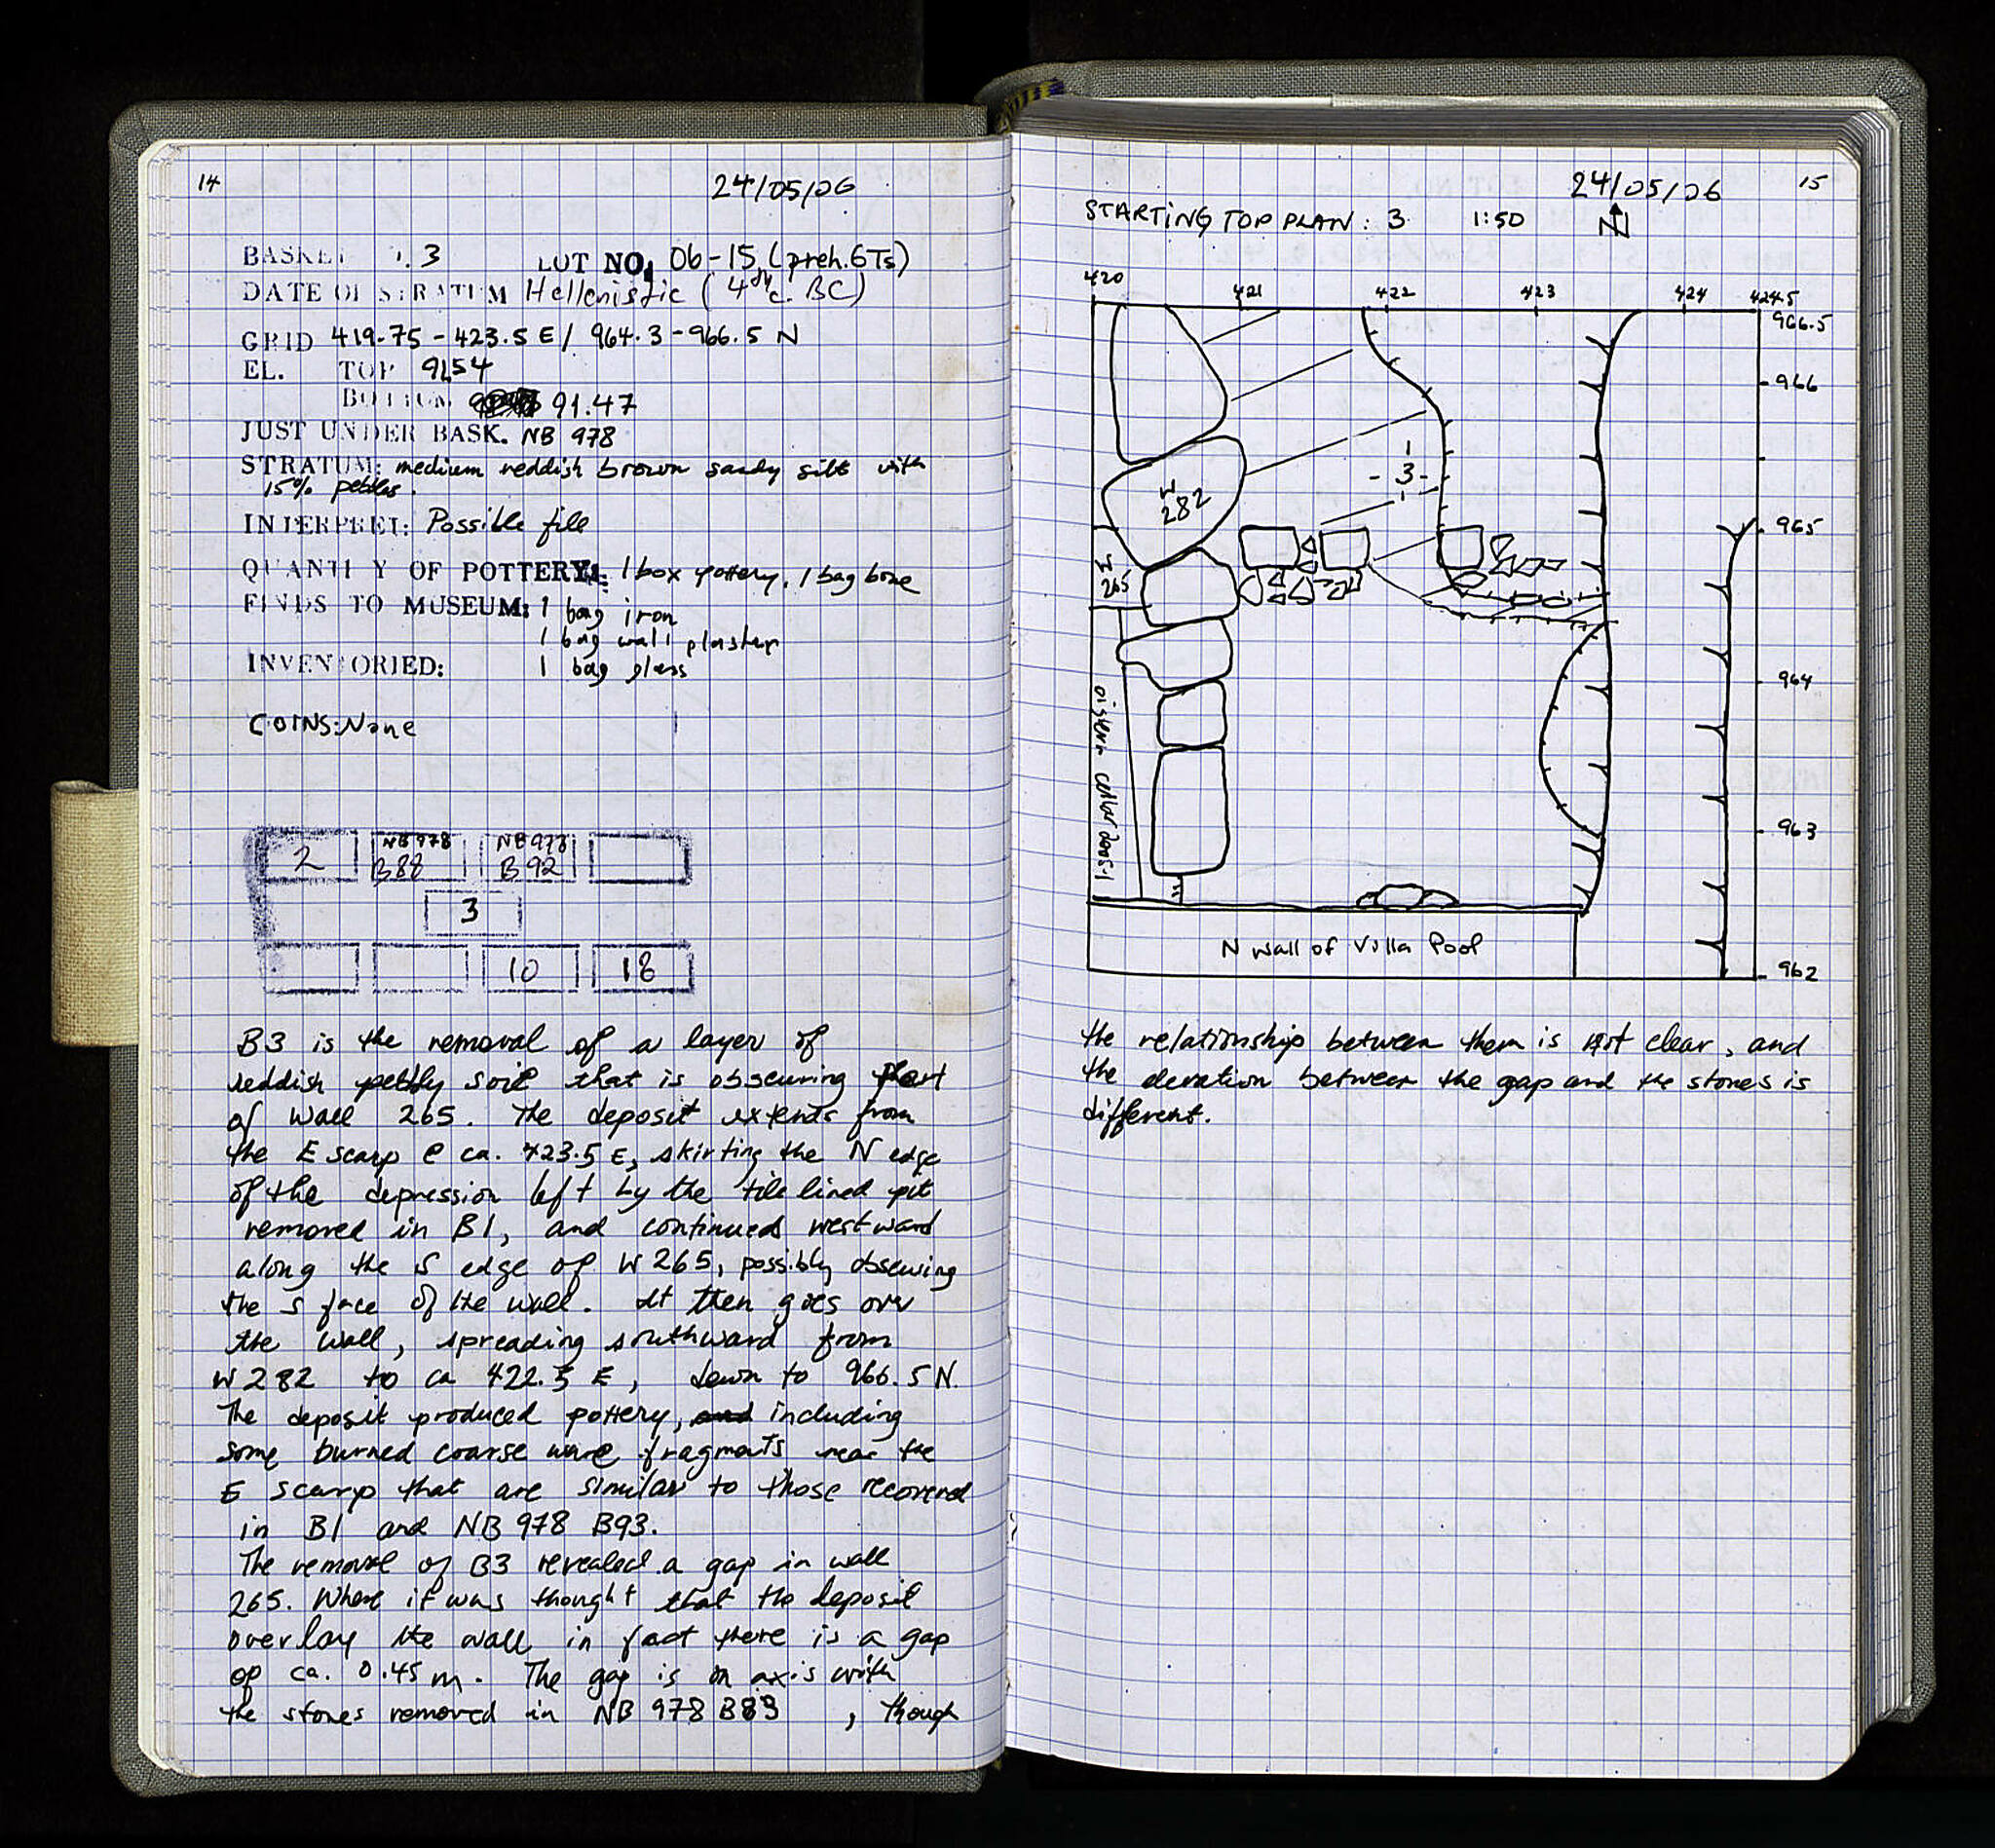 14
24/05/06
BASKET . 3 LOT NO. 06-15 (preh. 6Ts)
DATE OF STRATUM Hellenistic (4th c. BC)
GRID 419.75 - 423.5 E / 964.3 - 966.5 N
EL. TOP 91.54
BOTTOM 91.47
JUST UNDER BASK. NB 978
STRATUM: medium reddish brown sandy silt with
15% pebbles.
INTERPRET: Possible fill
QUANTITY OF POTTERY: 1 box pottery, 1 bag bone
FINDS TO MUSEUM: 1 bag iron
1 bag wall plaster
INVENTORIED: 1 bag glass
COINS: None
2 NB 978 B88 NB 978 B92
3
10 18
B3 is the removal of a layer of
reddish pebbly soil that is obscuring part
of wall 265. The deposit extents from
the E scarp @ ca. 423.5 E, skirting the N edge
of the depression left by the tile lined pit
removed in B1, and continued westward
along the S edge of W 265, possibly obscuring
the S face of the wall. It then goes over
the wall, spreading southward from
W 282 to ca 422.5 E, down to 966.5 N.
The deposit produced pottery, and including
some burned coarse ware fragments near the
E scarp that are similar to those recovered
in B1 and NB 978 B93.
The removal of B3 revealed a gap in wall
265. Where it was thought that the deposit
overlay the wall in fact there is a gap
of ca. 0.45 m. The gap is on axis with
the stones removed in NB 978 B89, though
24/05/06 15
STARTING TOP PLAN: 3 1:50 N
420 421 422 423 424 424.5
966.5
966
965
964
963
962
W 282
-3-
W 265
cistern collar 2005-1
N wall of Villa Pool
the relationship between them is not clear, and
the elevation between the gap and the stones is
different.